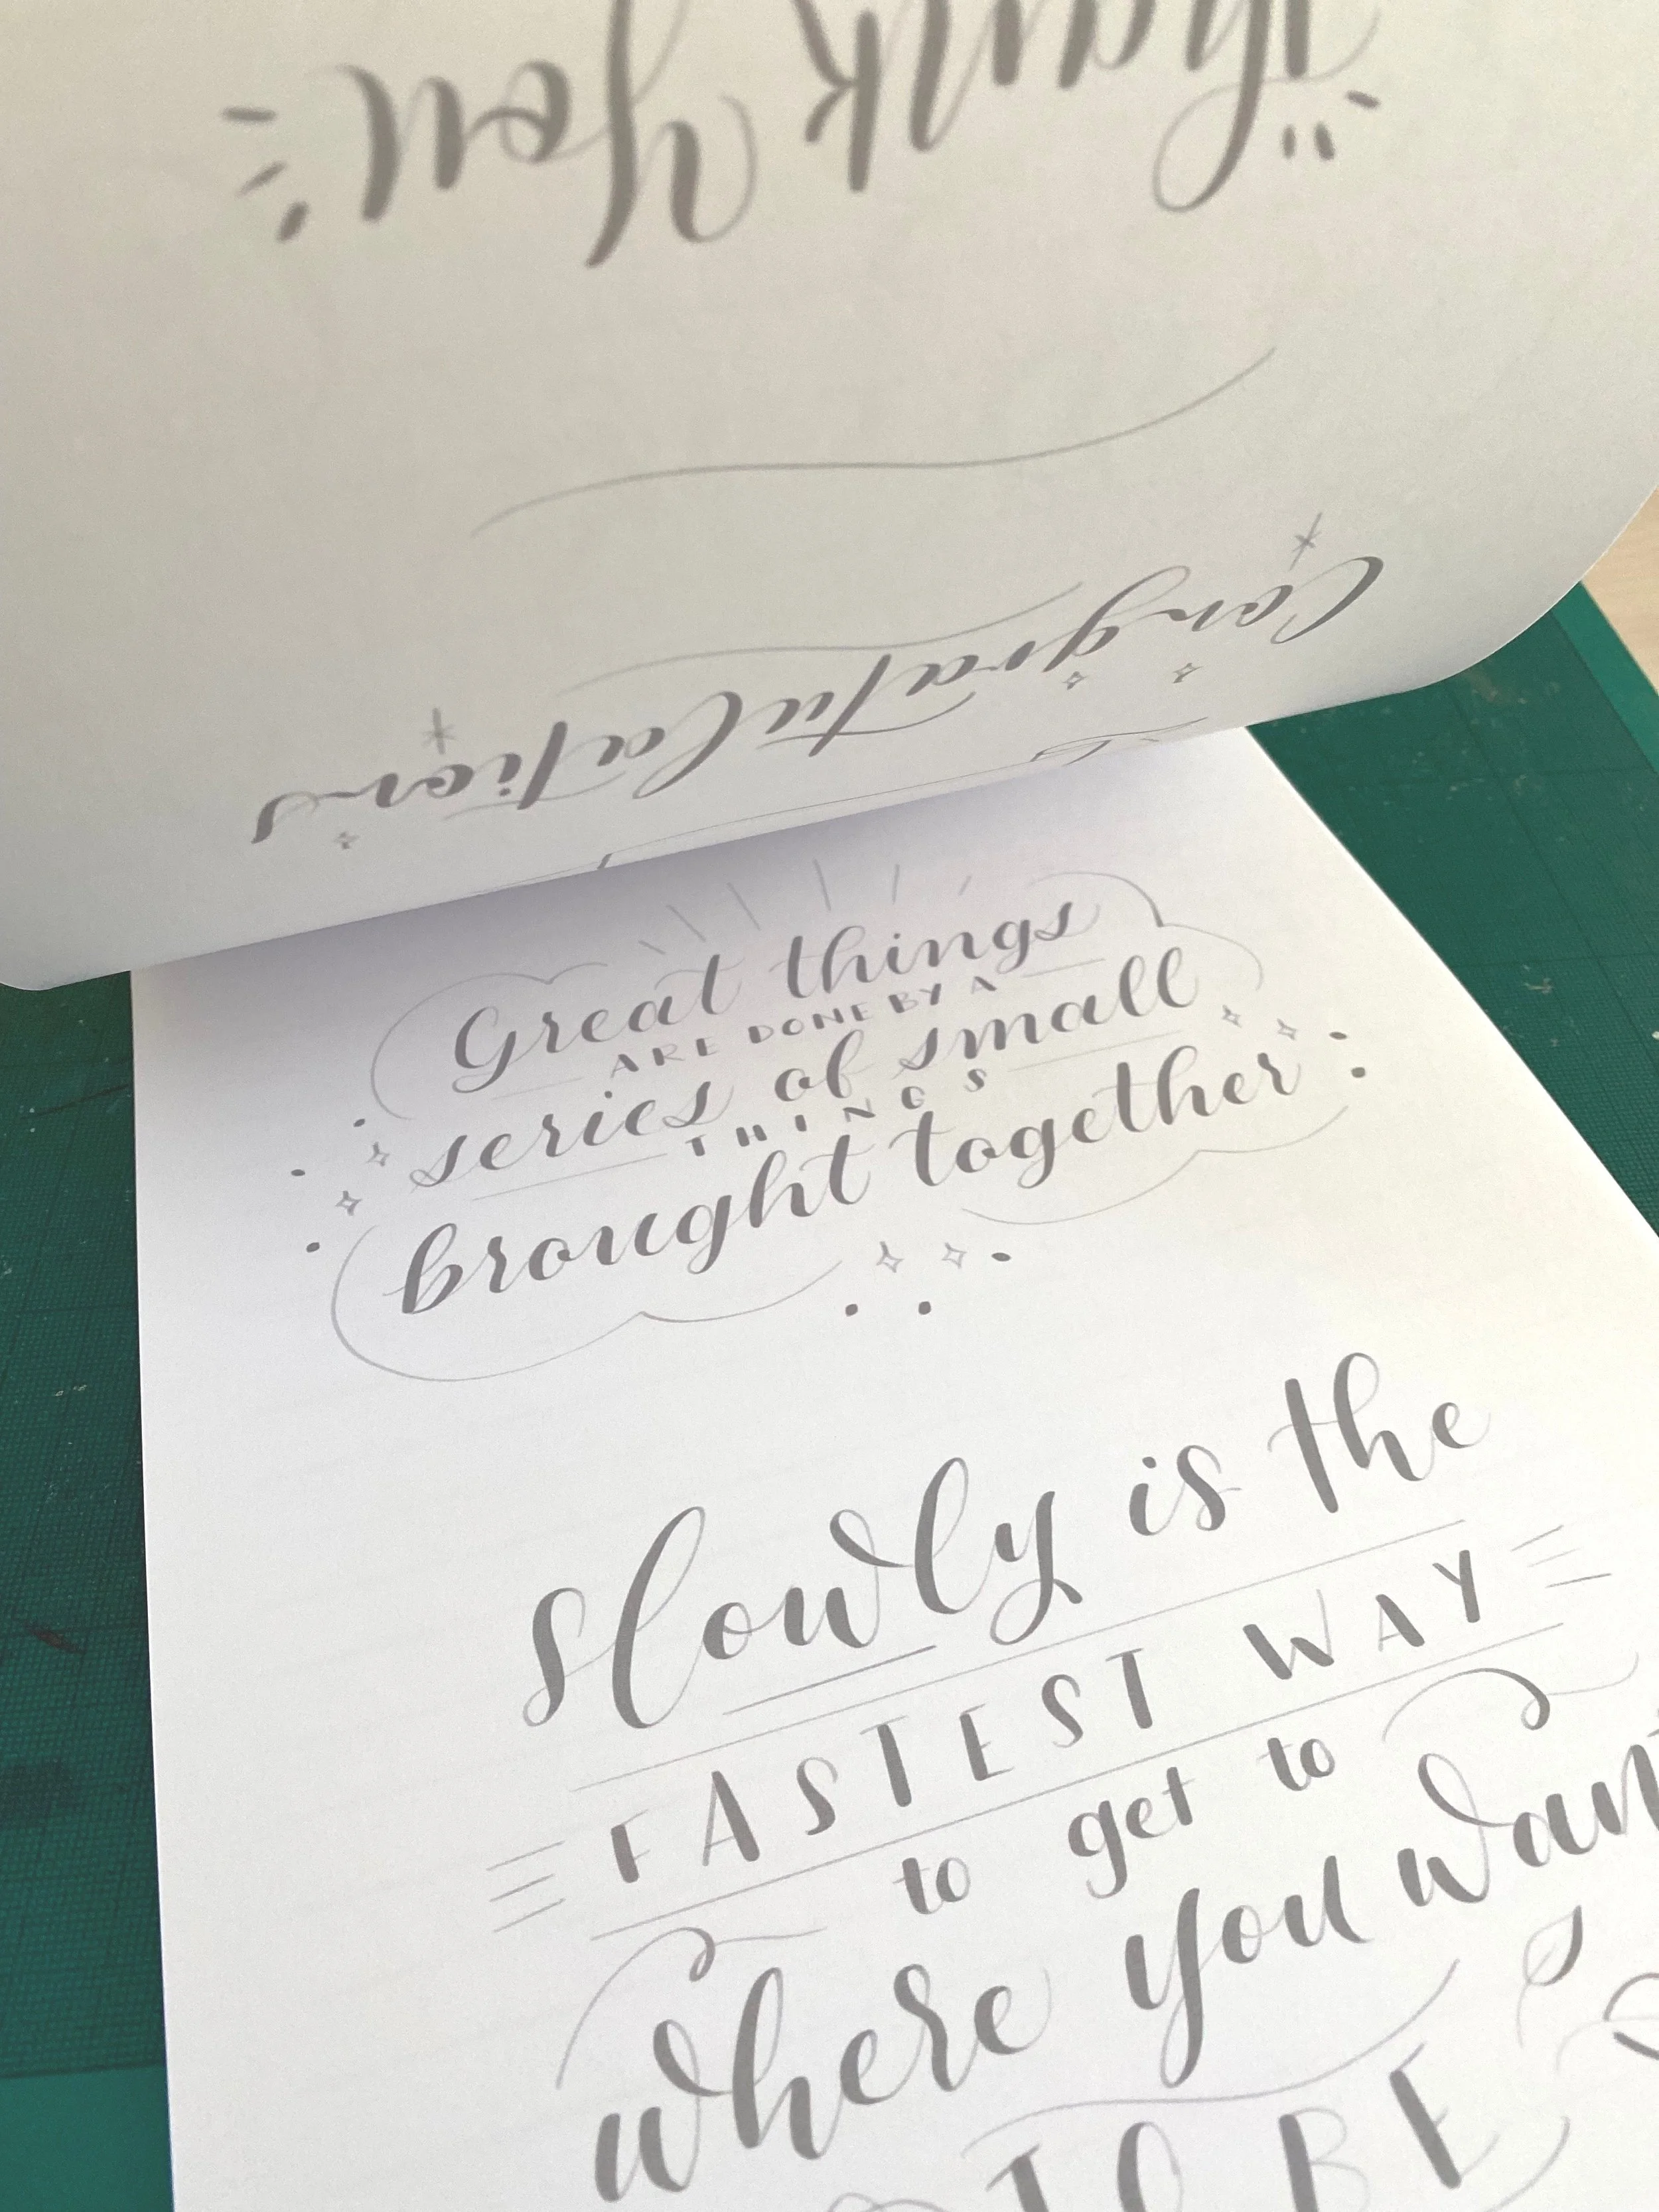 Thank you
Congratulations
Great things
ARE DONE BY A
series of small
THINGS
brought together
Slowly is the
FASTEST WAY
to get to
where you want
TO BE